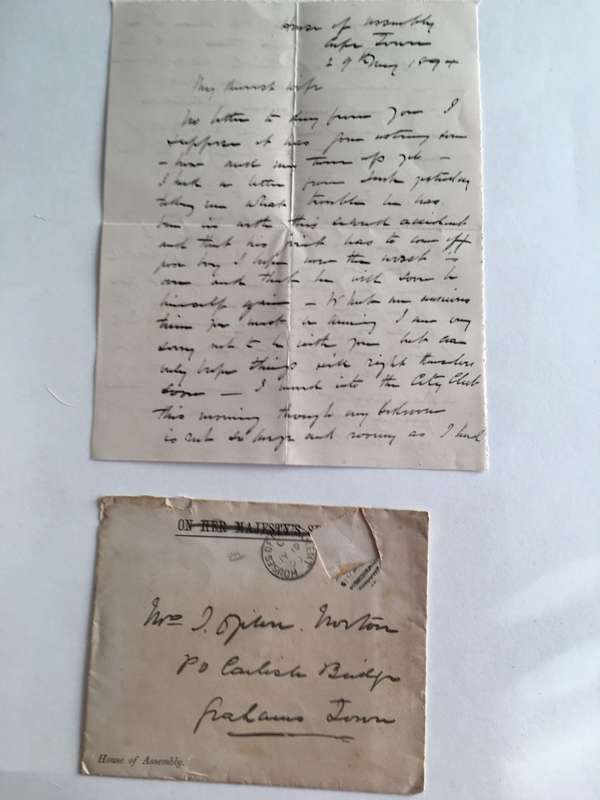 House of Assembly
Cape Town
29th May 1894
My dearest wife
No letter to day from you I
suppose it has gone astray some
how and will turn up yet —
I had a letter from Jack yesterday
telling me what trouble he has
been in with this second accident
and that his joint has to come off
poor boy I hope now the worst is
over and that he will soon be
himself again — What an anxious
time you must be having I am very
sorry not to be with you but can
only hope things will right themselves
soon — I moved into the City Club
this morning though my bedroom
is not so large and roomy as I had
ON HER MAJESTY'S
HOUSES OF
Mrs J. Norton
PO Carlisle Bridge
Grahams Town
House of Assembly.